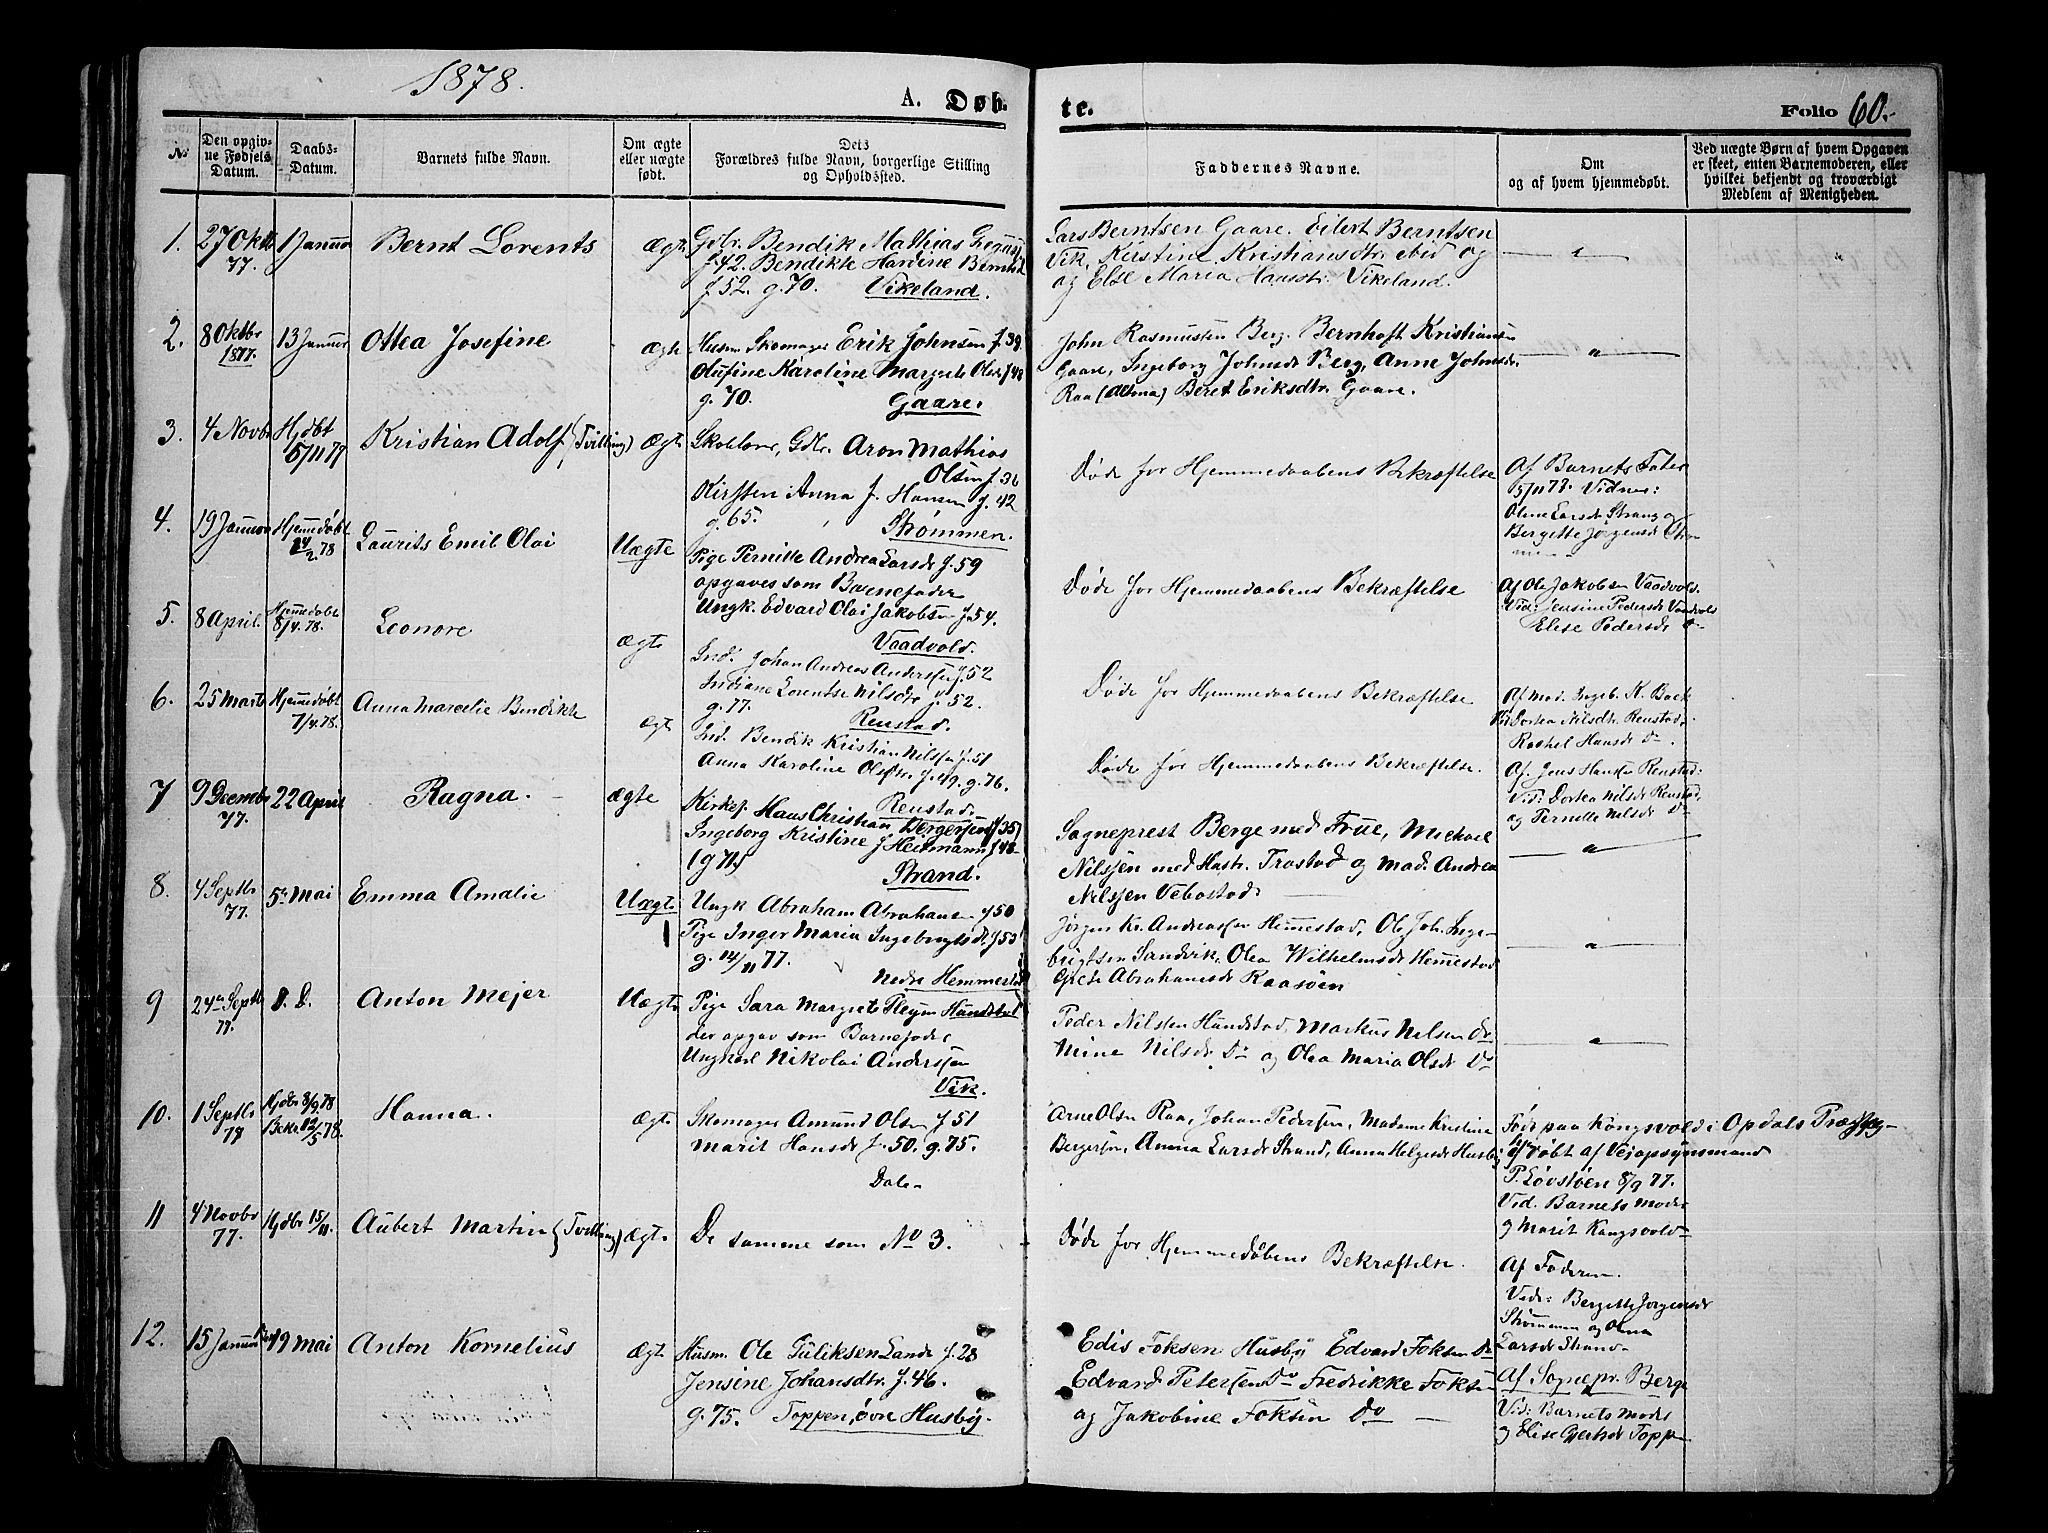 1878.
A. Døb-
te.
Folio 60.
No
Den opgiv-
ne Fødsels
Datum.
Daabs-
Datum.
Barnets fulde Navn.
Om ægte
eller uægte
født.
Dets
Forældres fulde Navn, borgerlige Stilling
og Opholdssted.
Faddernes Navne.
Om
og af hvem hjemmedøbt.
Ved uægte Børn af hvem Opgaven
er skeet, enten Barnemoderen, eller
hvilket bekjendt og troværdigt
Medlem af Menigheden.
1.
27 Oktbr
77.
1 Januar
Bernt Lorents
Ægte
Gdbr. Bendik Mathias
f. 42. Bendikte Hardine
f. 52. g. 70. Vikeland.
Lars Berntsen Gaare. Eilert Berntsen
Vik, Kirstine Kristiansdtr. ibid og
og Else Maria Hansdtr. Vikeland.
2.
8 Oktbr
1877.
13 Januar
Ottea Josefine
Ægte
Husm Skomager Erik Johnsen f. 39
Olufine Karoline Margrete Olsdr f 48
g. 70. Gaare.
John Rasmussen Berg. Bernhoft Kristiansen
Gaare, Ingeborg Johnsdr Berg, Anne Johnsdr.
Raa (Altma) Beret Eriksdtr. Gaare.
3.
4 Novbr
Hjdbt
5/11 77
Kristian Adolf (Tvilling)
Ægte
Skolelærer, Gdbr. Aron Mathias
Olsen f. 36
Kirsten Anna f. Hansen f. 42
g. 65. Strømmen.
Døde før Hjemmedaabens Bekræftelse
Af Barnets Fader
5/11 77. Vidner:
Olene Larsdr Strand og
Bergette Jørgensdr Strøm
men
4.
19 Januar
Hjemmedøbt
24/2 78
Laurits Emil Olai
Uægte
Pige Pernille Andrea Larsdr f. 59
opgaves som Barnefader
Ungk. Edvard Olai Jakobsen f. 54.
Vaadvold.
Døde før Hjemmedaabens Bekræftelse
Af Ole Jakobsen Vaadvold.
Vid: Jensine Pedersdr Vaadvold
Elise Pedersdr Do
5.
8 April.
Hjemmedøbt
8/4. 78.
Leonore
Ægte
Ind. Johan Andreas Andersen f. 52
Indiane Lorentse Nilsdr f. 52.
g. 77. Renstad.
Døde før Hjemmedaabens Bekræftelse
Af Mad. Ingeb. K. Back
Vid Dortea Nilsdtr. Renstad,
Rachel Hansdr Do.
6.
25 Marts
Hjemmedøbt
7/4. 78.
Anna Marcelie Bendikte
Ægte
Ind. Bendik Kristian Nilsen f. 51
Anna Karoline Olsdtr f. 49. g. 76.
Renstad.
Døde før Hjemmedaabens Bekræftelse.
Af. Jens Hansen Renstad.
Vid: Dortea Nilsdr Renstad,
og Pernelle Nilsdr Do
7
9 Decembr
77.
22 April
Ragna.
Ægte
Kirkes. Hans Christian Bergersen (f 35)
Ingeborg Kristine f Heitmann f 48
(g 71) Strand.
Sogneprest Berge med Frue, Michael
Nilssen med Hustr. Trastad og Mad. Andrea
Nilssen Vebostad
8.
4 Septbr
77.
5te Mai
Emma Amalie
Uægte
Ungk Abraham Abrahamsen f 50
Pige Inger Maria Ingebregtsdr. f 53
g. 14/11 77.
Nedre Hemmestad
Jørgen Kr. Andreassen Hemmestad, Ole Joh. Inge-
brigtsen Sandvik, Olea Wilhelmsdr Hemmestad
Grete Abrahamsdr Raasøen
9
24de Septbr
77.
S. D.
Anton Mejer
Uægte
Pige Sara Margrete Hundstad
der opgav som Barnefader
Ungkarl Nikolai Anderssen
Vik.
Peder Nilssen Hundstad, Markus Nilsen Do
Mine Nilsdr Do og Olea Maria Olsdr Do
10.
1 Septbr
77
Hjdbt 8/9. 78
Bekr. 12/5 78.
Hanna.
Ægte
Skomager Amund Olsen f 51
Marit Hansdr f. 50. g. 75.
Dale
Arne Olsen Raa, Johan Pedersen, Madame Kristine
Bergersen, Amma Larsdr Strand, Anna Helgesdr Husby
Født paa Kongsvold i Opdals Præsteg-
hjdøbt af Vejopsynsmand
P. Løvstøen 8/9 77.
Vid. Barnets Moder
og Marit Kongsvold
11
4 Novbr
77.
Hjdbt 15/11.
Aubert Martin (Tvilling)
Ægte
De samme som No 3.
Døde før Hjemmedøbens Bekræftelse.
Af Faderen.
Vidr: Bergette Jorgensdr
Strømmen og Olena
Larsdr Strand
12.
15 Januar
19 Mai
Anton Kornelius
Ægte
Husm. Ole Tuliksen Lande f. 28
Jensine Johansdtr. f. 46.
g. 75. Toppen, øvre Husby.
Edis Foksen Husby Edvard Foksen Do
Edvard Petersen Do Fredrikke Foksen
og Jakobine Foksen Do
Af Sognepr. Berge
Vid: Barnets Moder
og Elise Gjertsdr Toppen